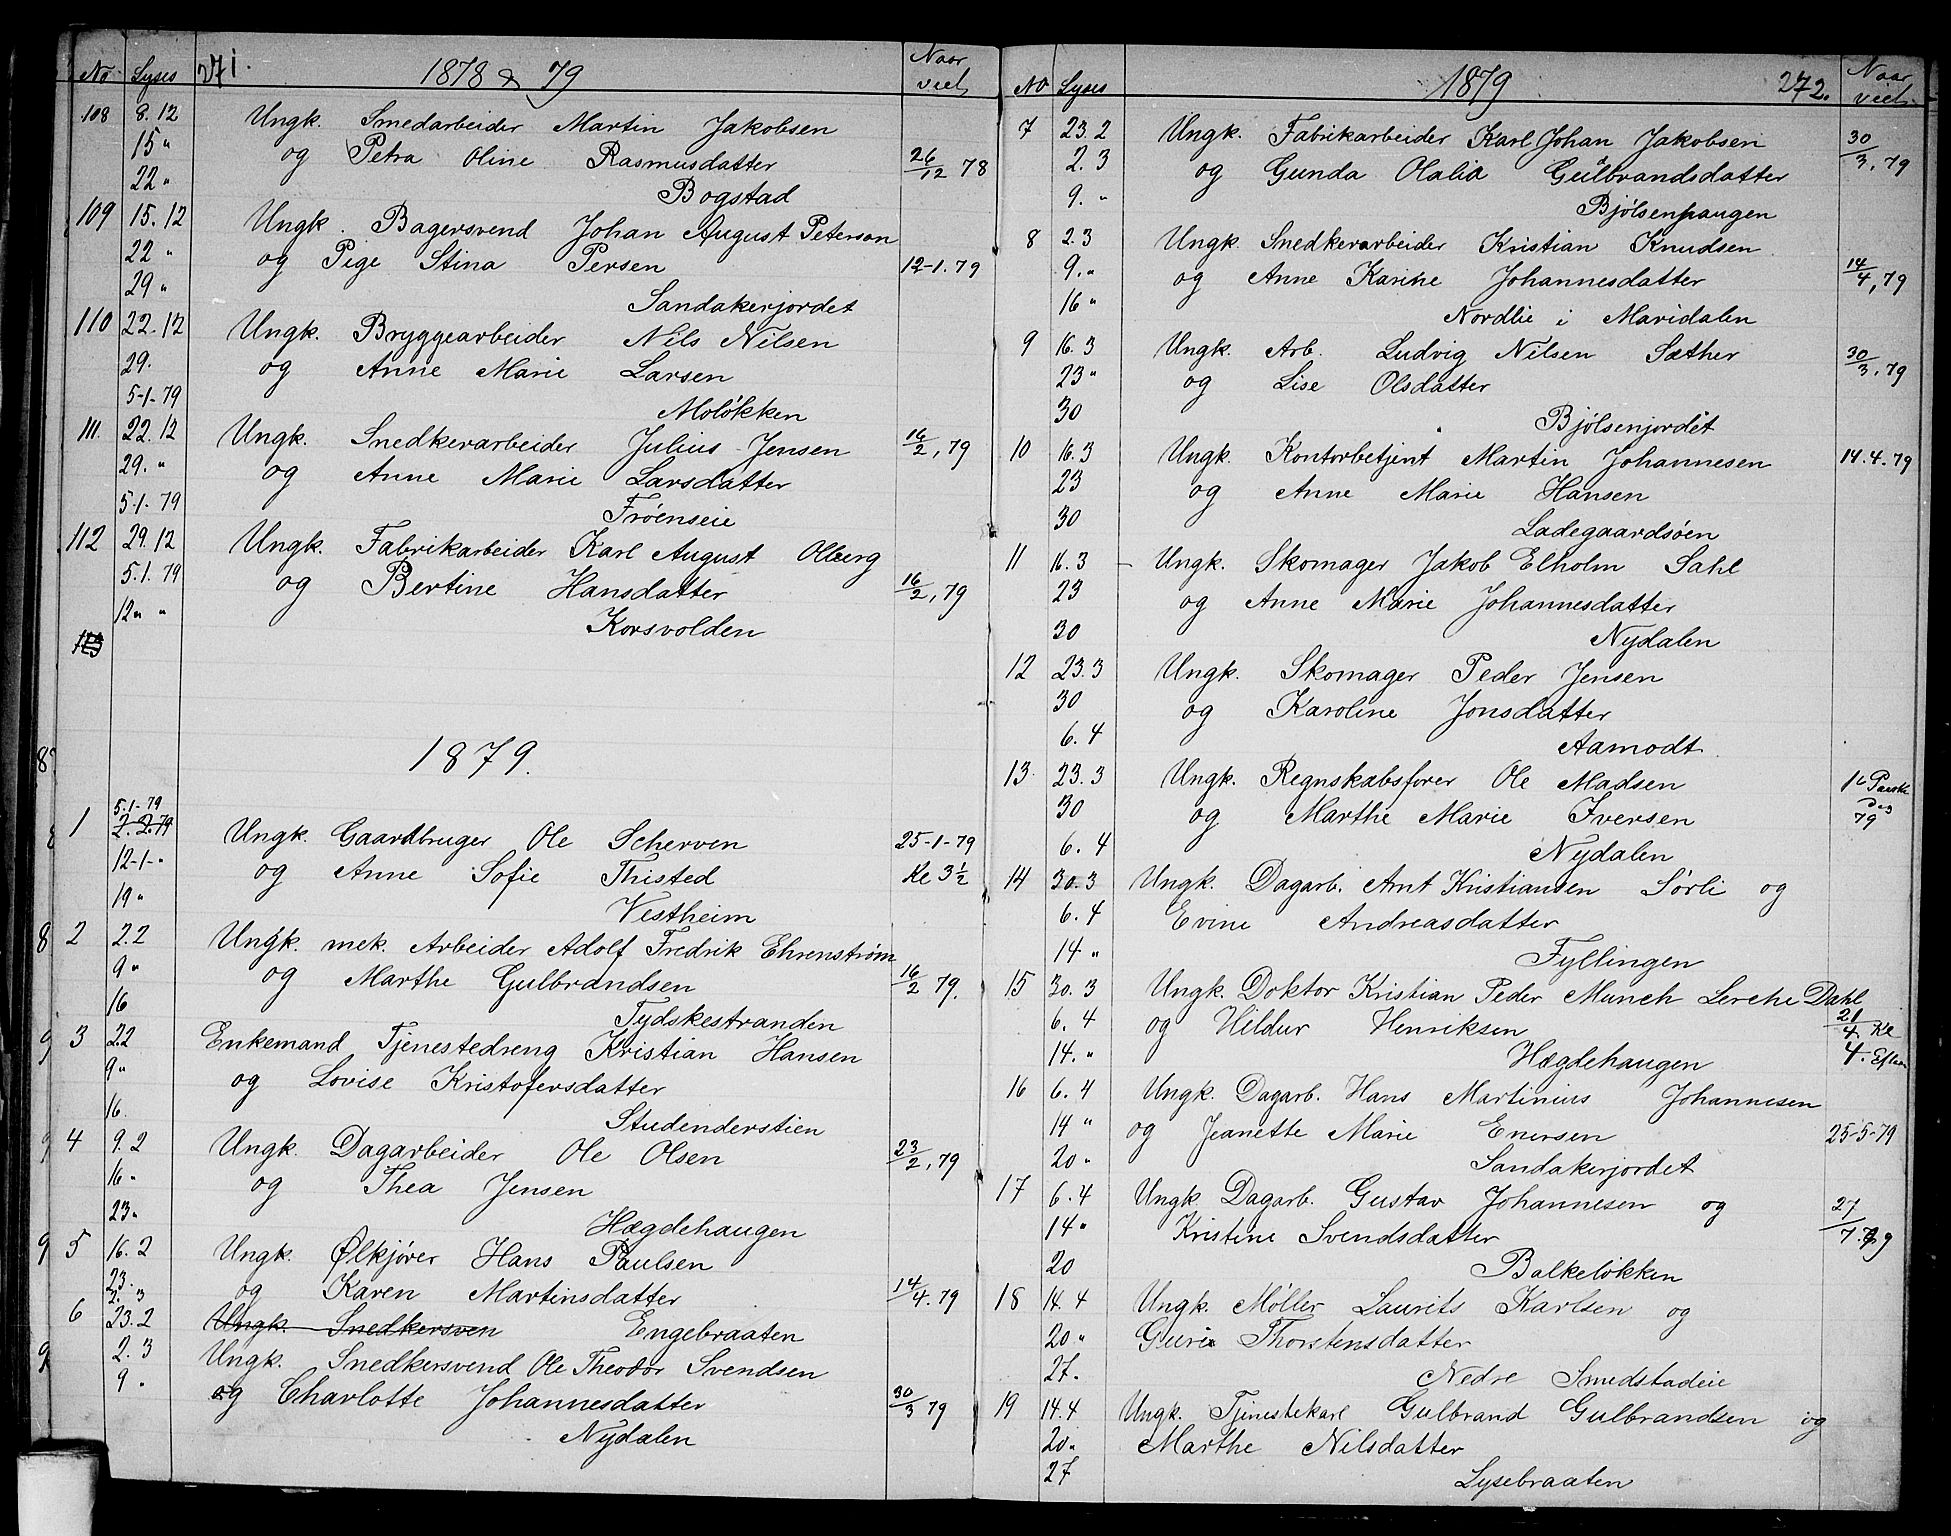 No Lyses 271. 1878 & 79 Naar viet
108 8.12 Ungk. Smedarbeider Martin Jakobsen
15 " og Petra Oline Rasmusdatter 26/12 78
22 " Bogstad
109 15.12 Ungk. Bagersvend Johan August Peterson
22 " og Pige Stina Persen 12-1.79
29 " Sandakerjordet
110 22.12 Ungk. Bryggearbeider Nils Nilsen
29. og Anne Marie Larsen
5-1-79 Moløkken
111. 22.12 Ungk. Snedkerarbeider Julius Jensen 16/2, 79
29. " og Anne Marie Larsdatter
5-1-79 Frøenseie
112 29.12 Ungk. Fabrikarbeider Karl August Olberg
5.1.79 og Bertine Hansdatter 16/2, 79
12 " " Korsvolden
113
1879.
5-1-79
1 2.2.79 Ungk. Gaardbruger Ole Scherven 25-1-79
12-1-" og Anne Sofie Thisted Kl 3 1/2
19 " Vestheim
2 2.2 Ungk. mek. Arbeider Adolf Fredrik Ehrenstrøm
9 " og Marthe Gulbrandsen 16/2 79.
16 Tydskestranden
3 2.2 Enkemand Tjenestedreng Kristian Hansen
9 " og Lovise Kristofersdatter
16 Studenderstien
4 9.2 Ungk. Dagarbeider Ole Olsen 23/2, 79
16 " og Thea Jensen
23 " Hægdehaugen
5 16.2 Ungk. Ølkjører Hans Paulsen
23. og Karen Martinsdatter 14/4.79
2. 3
6 23.2 Ungk. Snedkersven Engebraaten
2. 3 Ungk. Snedkersvend Ole Theodor Svendsen
9 " og Charlotte Johannesdatter 30/3 79
Nydalen
No Lyses 1879 272. Naar viet.
7 23.2 Ungk. Fabrikarbeider Karl Johan Jakobsen 30/3, 79
2.3 og Gunda Olalia Gulbrandsdatter
9. " Bjølsenhaugen
8 2.3 Ungk. Snedkerarbeider Kristian Knudsen
9. " og Anne Karine Johannesdatter 14/4, 79
16 " Nordlie i Maridalen
9 16.3 Ungk. Arb. Ludvig Nilsen Sæther 30/3, 79
23 " og Lise Olsdatter
30 Bjølsenjordet
10 16.3 Ungk. Kontorbetjent Martin Johannesen 14.4.79
23 og Anne Marie Hansen
30 Ladegaardsøen
11 16.3 Ungk. Skomager Jakob Elholm Sahl
23 og Anne Marie Johannesdatter
30 Nydalen
12 23.3 Ungk. Skomager Peder Jensen
30 og Karoline Jonsdatter
6.4 Aamodt.
13. 23.3 Ungk. Regnskabsfører Ole Madsen 1ste Paaske
30 og Marthe Marie Iversen Dag 79
6.4 Nydalen
14 30.3 Ungk. Dagarb. Arnt Kristiansen Sørli og
6.4 Evine Andreasdatter
14 " Fyllingen
15 30.3 Ungk. Doktor Kristian Peder Munch Lerche Dahl
6.4 og Hildur Henriksen 21/4 Kl
14. " Hægdehaugen 4. Efterm
16 6.4 Ungk. Dagarb. Hans Martinius Johannesen
14 " og Jeanette Marie Enersen 25-5-79
20 " Sandakerjordet
17 6.4 Ungk Dagarb. Gustav Johannesen og 27/7.79
14 " Kristine Svendsdatter
20 Balkeløkken
18 14.4 Ungk. Møller Laurits Karlsen og
20 " Guri Thorstensdatter
27. Nedre Smedstadeie
19 14.4 Ungk. Tjenestekarl Gulbrand Gulbrandsen og
20 " Marthe Nilsdatter
27 Lysebraaten